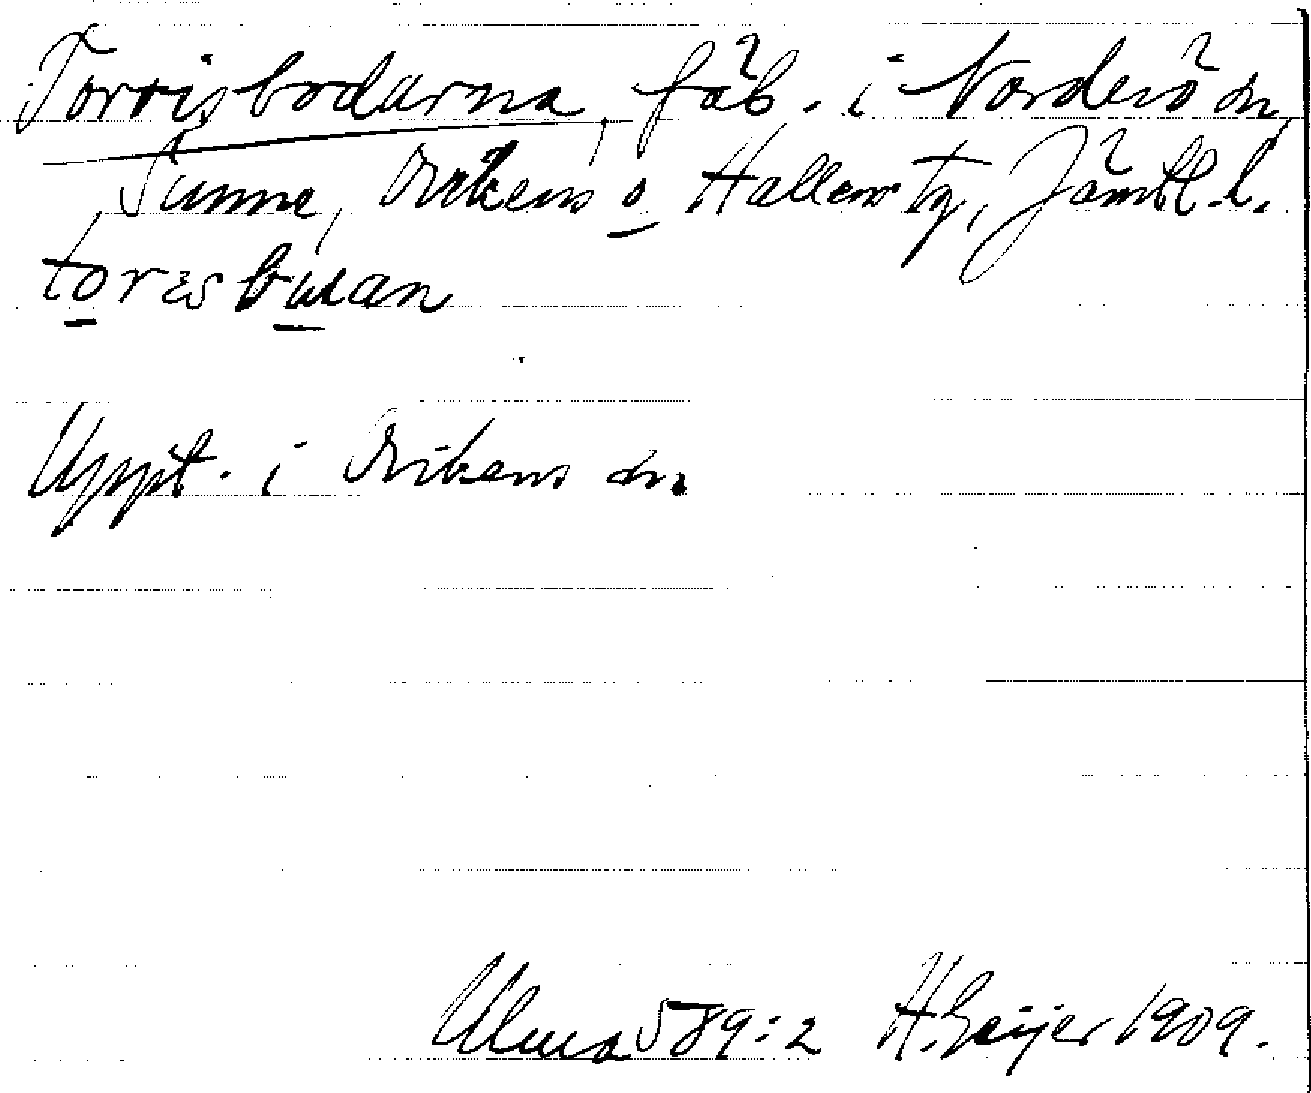 Torrisbodarna, fäb. i Norderö sn,
Sunne, Ovikens o Hallens tg, Jämtl. l.
toresbuan
Uppt. i Ovikens sn
Ulma 589:2 H. Geijer 1909.